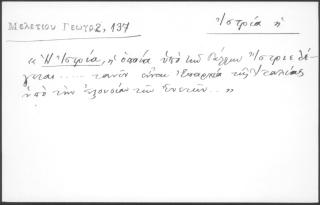 Μελετίου Γεωγρ 2, 137
Ἰστρία ἡ
« Ἡ Ἰστρία, ἡ ὁποία ὑπὸ τῶν Γάλλων Ἴστριε λέ
γεται..... τανῦν εἶναι Ἐπαρχία τῆς Ἰταλίας
ὑπὸ τὴν ἐξουσίαν τῶν Ἐνετῶν... »